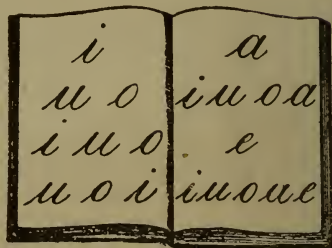 i
u o
i u o
u o i
a
i u o a
e
i u o u e